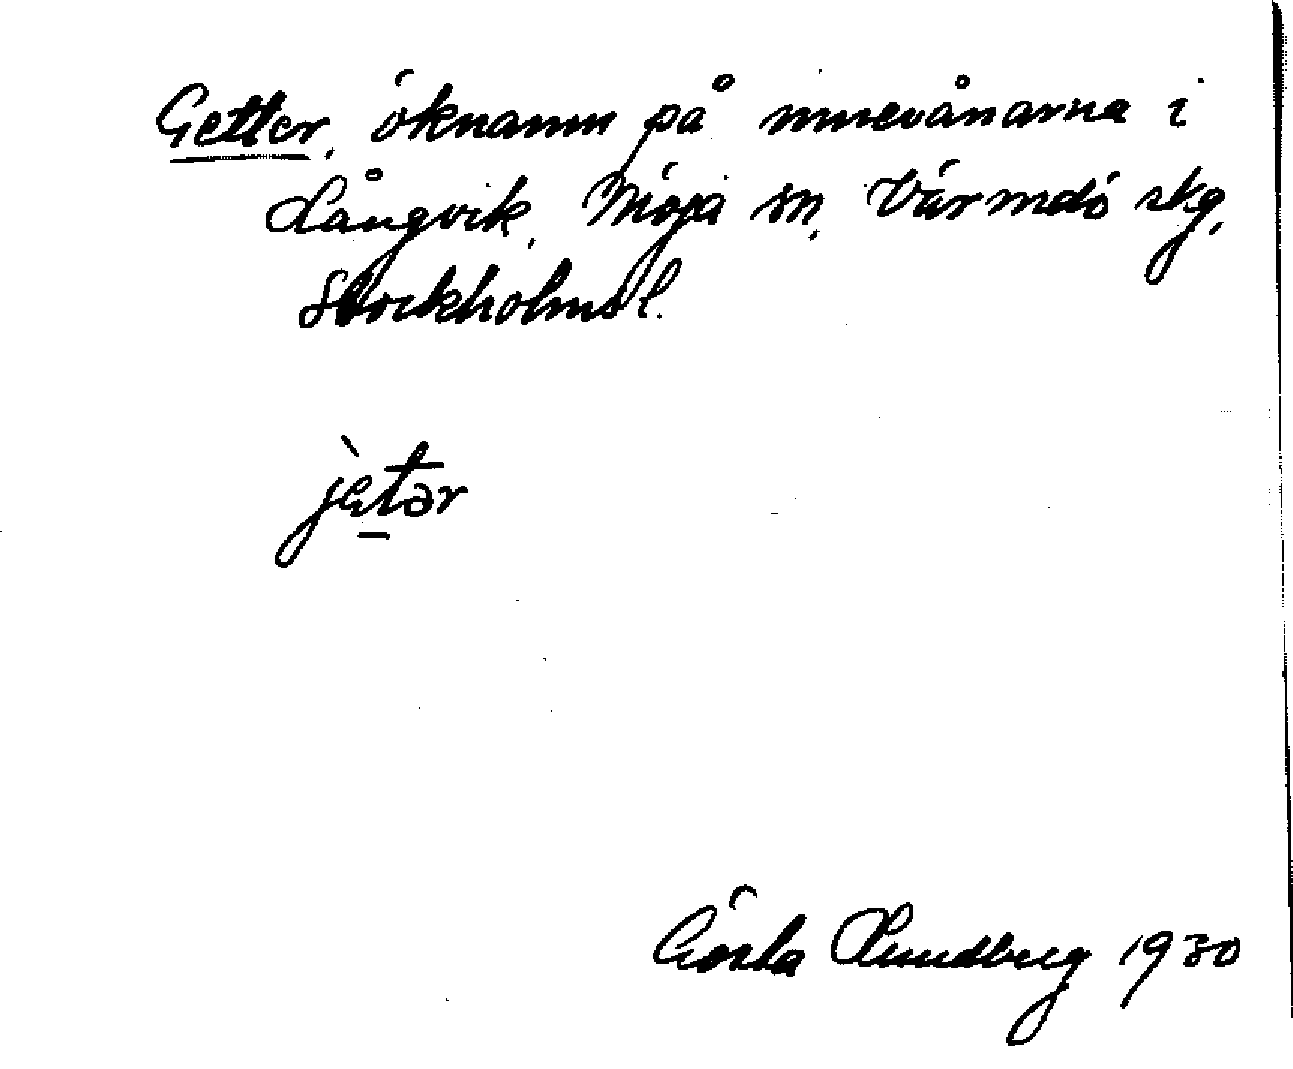 Getter, öknamn på innevånarna i
Långvik, Möja sn, Värmdö skg,
Stockholms l.
jètər
Gösta Lundberg 1930